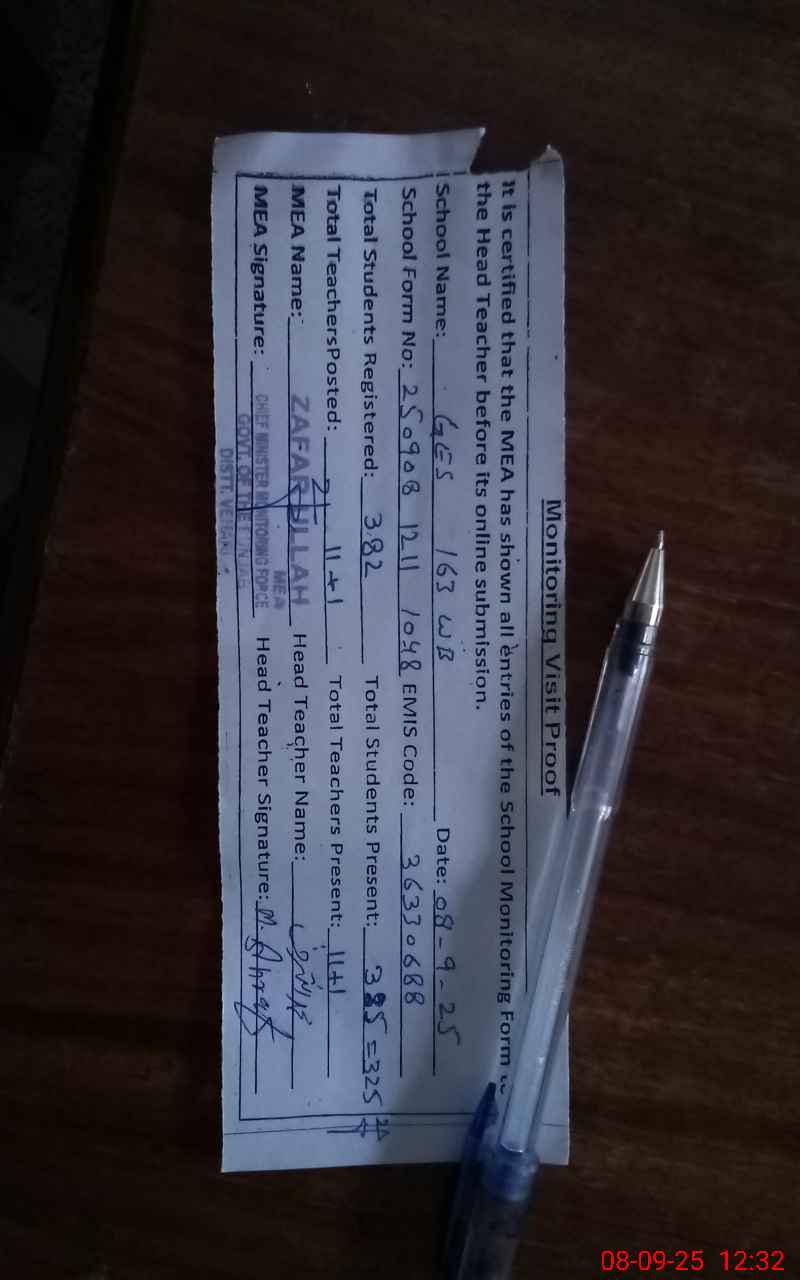 Monitoring Visit Proof
It is certified that the MEA has shown all entries of the School Monitoring Form
the Head Teacher before its online submission.
School Name: GES 163 WB Date: 08-9-25
School Form No: 250908 1211 1048 EMIS Code: 36330688
Total Students Registered: 382 Total Students Present: 325 = 325
Total TeachersPosted: 11+1 Total Teachers Present: 11+1
MEA Name: ZAFAR ULLAH Head Teacher Name:
MEA
MEA Signature: CHIEF MINISTER MONITORING FORCE Head Teacher Signature:
GOVT. OF THE PUNJAB
DISTT. VEHARI
08-09-25 12:32